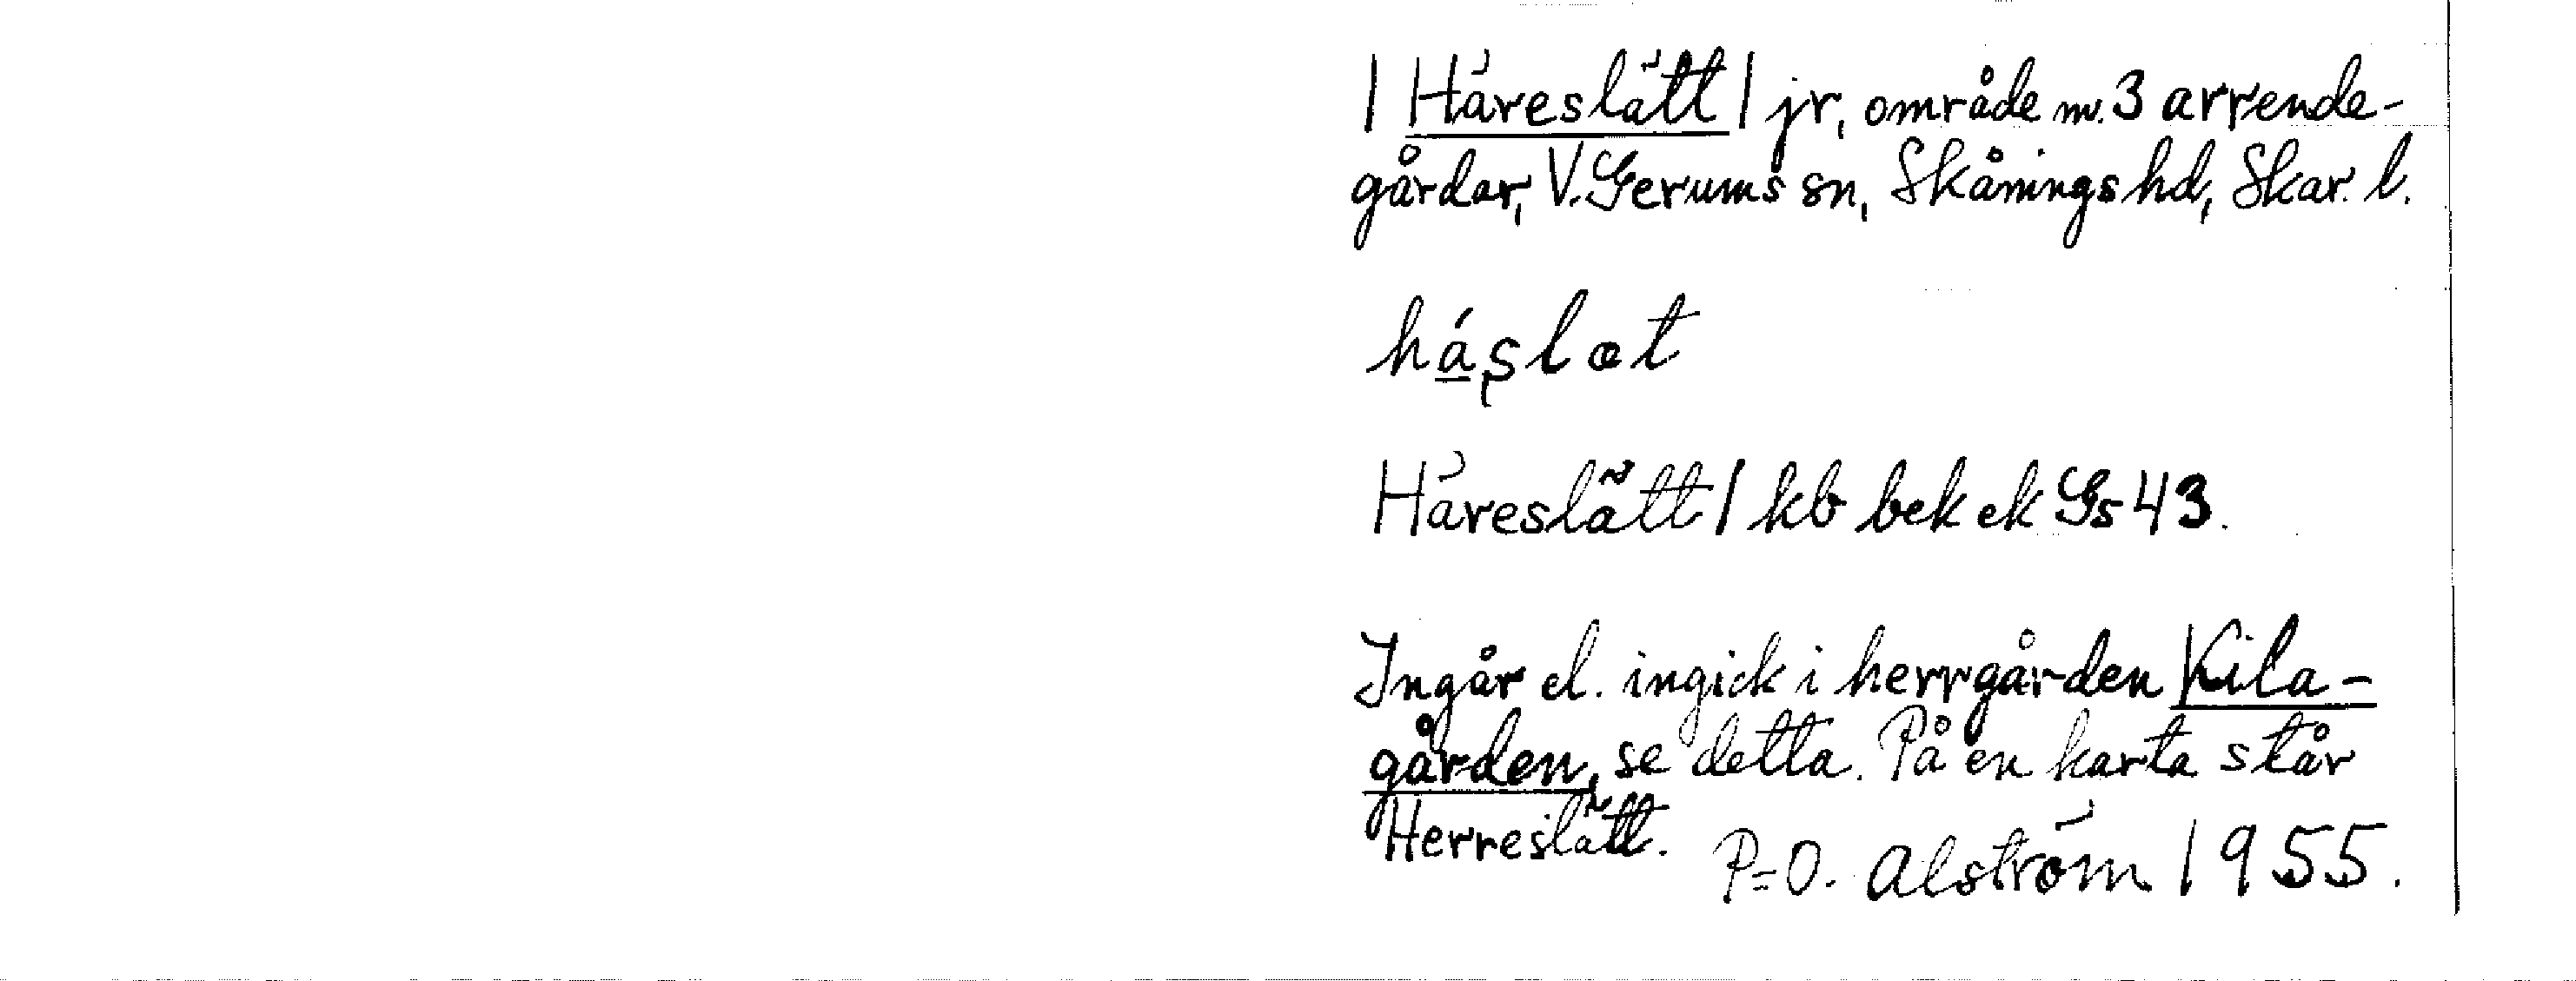 | Häreslätt | jr, område m. 3 arrende-
gårdar, V. Gerums sn, Skånings hd, Skar. l.
háslæt
Häreslätt | kb bek ek Gs 43.
Ingår el. ingick i herrgården Kila-
gården, se detta. På en karta står
Herreslätt.
P=O. Alström 1955.